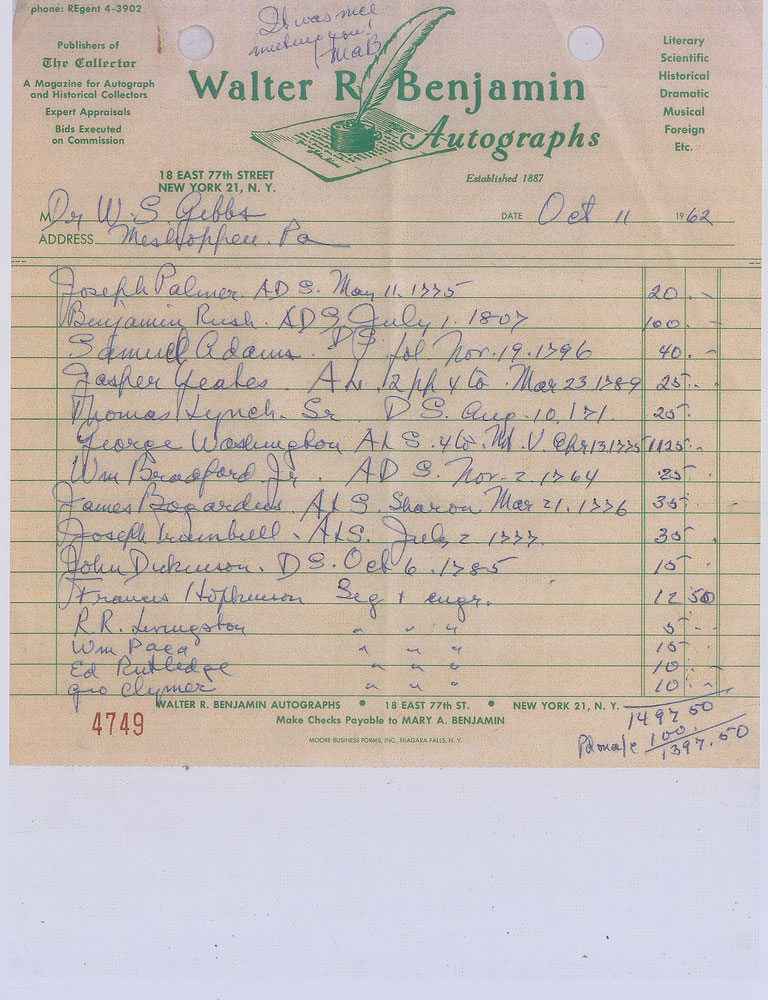 phone: REgent 4-3902
It was nice
meeting you!
MaB
Publishers of
The Collector
A Magazine for Autograph
and Historical Collectors
Expert Appraisals
Bids Executed
on Commission
Walter R. Benjamin
Autographs
Established 1887
Literary
Scientific
Historical
Dramatic
Musical
Foreign
Etc.
18 EAST 77th STREET
NEW YORK 21, N. Y.
M Dr W. S. Gibbs DATE Oct 11 1962
ADDRESS Meshoppen. Pa
Joseph Palmer. A D S. May 11. 1775 20 . -
Benjamin Rush. A D S July 1. 1807 100 . -
Samuel Adams. D S fol Nov. 19. 1796 40 . -
Jasper Yeates. A L. 2 pp 4to. Mar 23 1789 25 . -
Thomas Lynch. Sr D S. Aug. 10. 171. 25 .
George Washington A L S. 4to. Mt. V. Apr 13 1775 1125 -
Wm Bradford Jr. A D S. Nov. 2. 1764 25 .
James Bogardus. A L S. Sharon Mar 21. 1776 35 .
Joseph Trumbull. A L S. July 2. 1777. 35 .
John Dickinson. D S. Oct 6. 1785 15 .
Francis Hopkinson Sig + engr. 12 50
R. R. Livingston " " " 5 - -
Wm Paca " " " 15 .
Ed Rutledge " " " 10 . -
Geo Clymer " " " 10 . -
WALTER R. BENJAMIN AUTOGRAPHS • 18 EAST 77th ST. • NEW YORK 21, N. Y.
4749
Make Checks Payable to MARY A. BENJAMIN
MOORE BUSINESS FORMS, INC., NIAGARA FALLS, N. Y.
1497 50
Pd on a/c 100.
1397.50